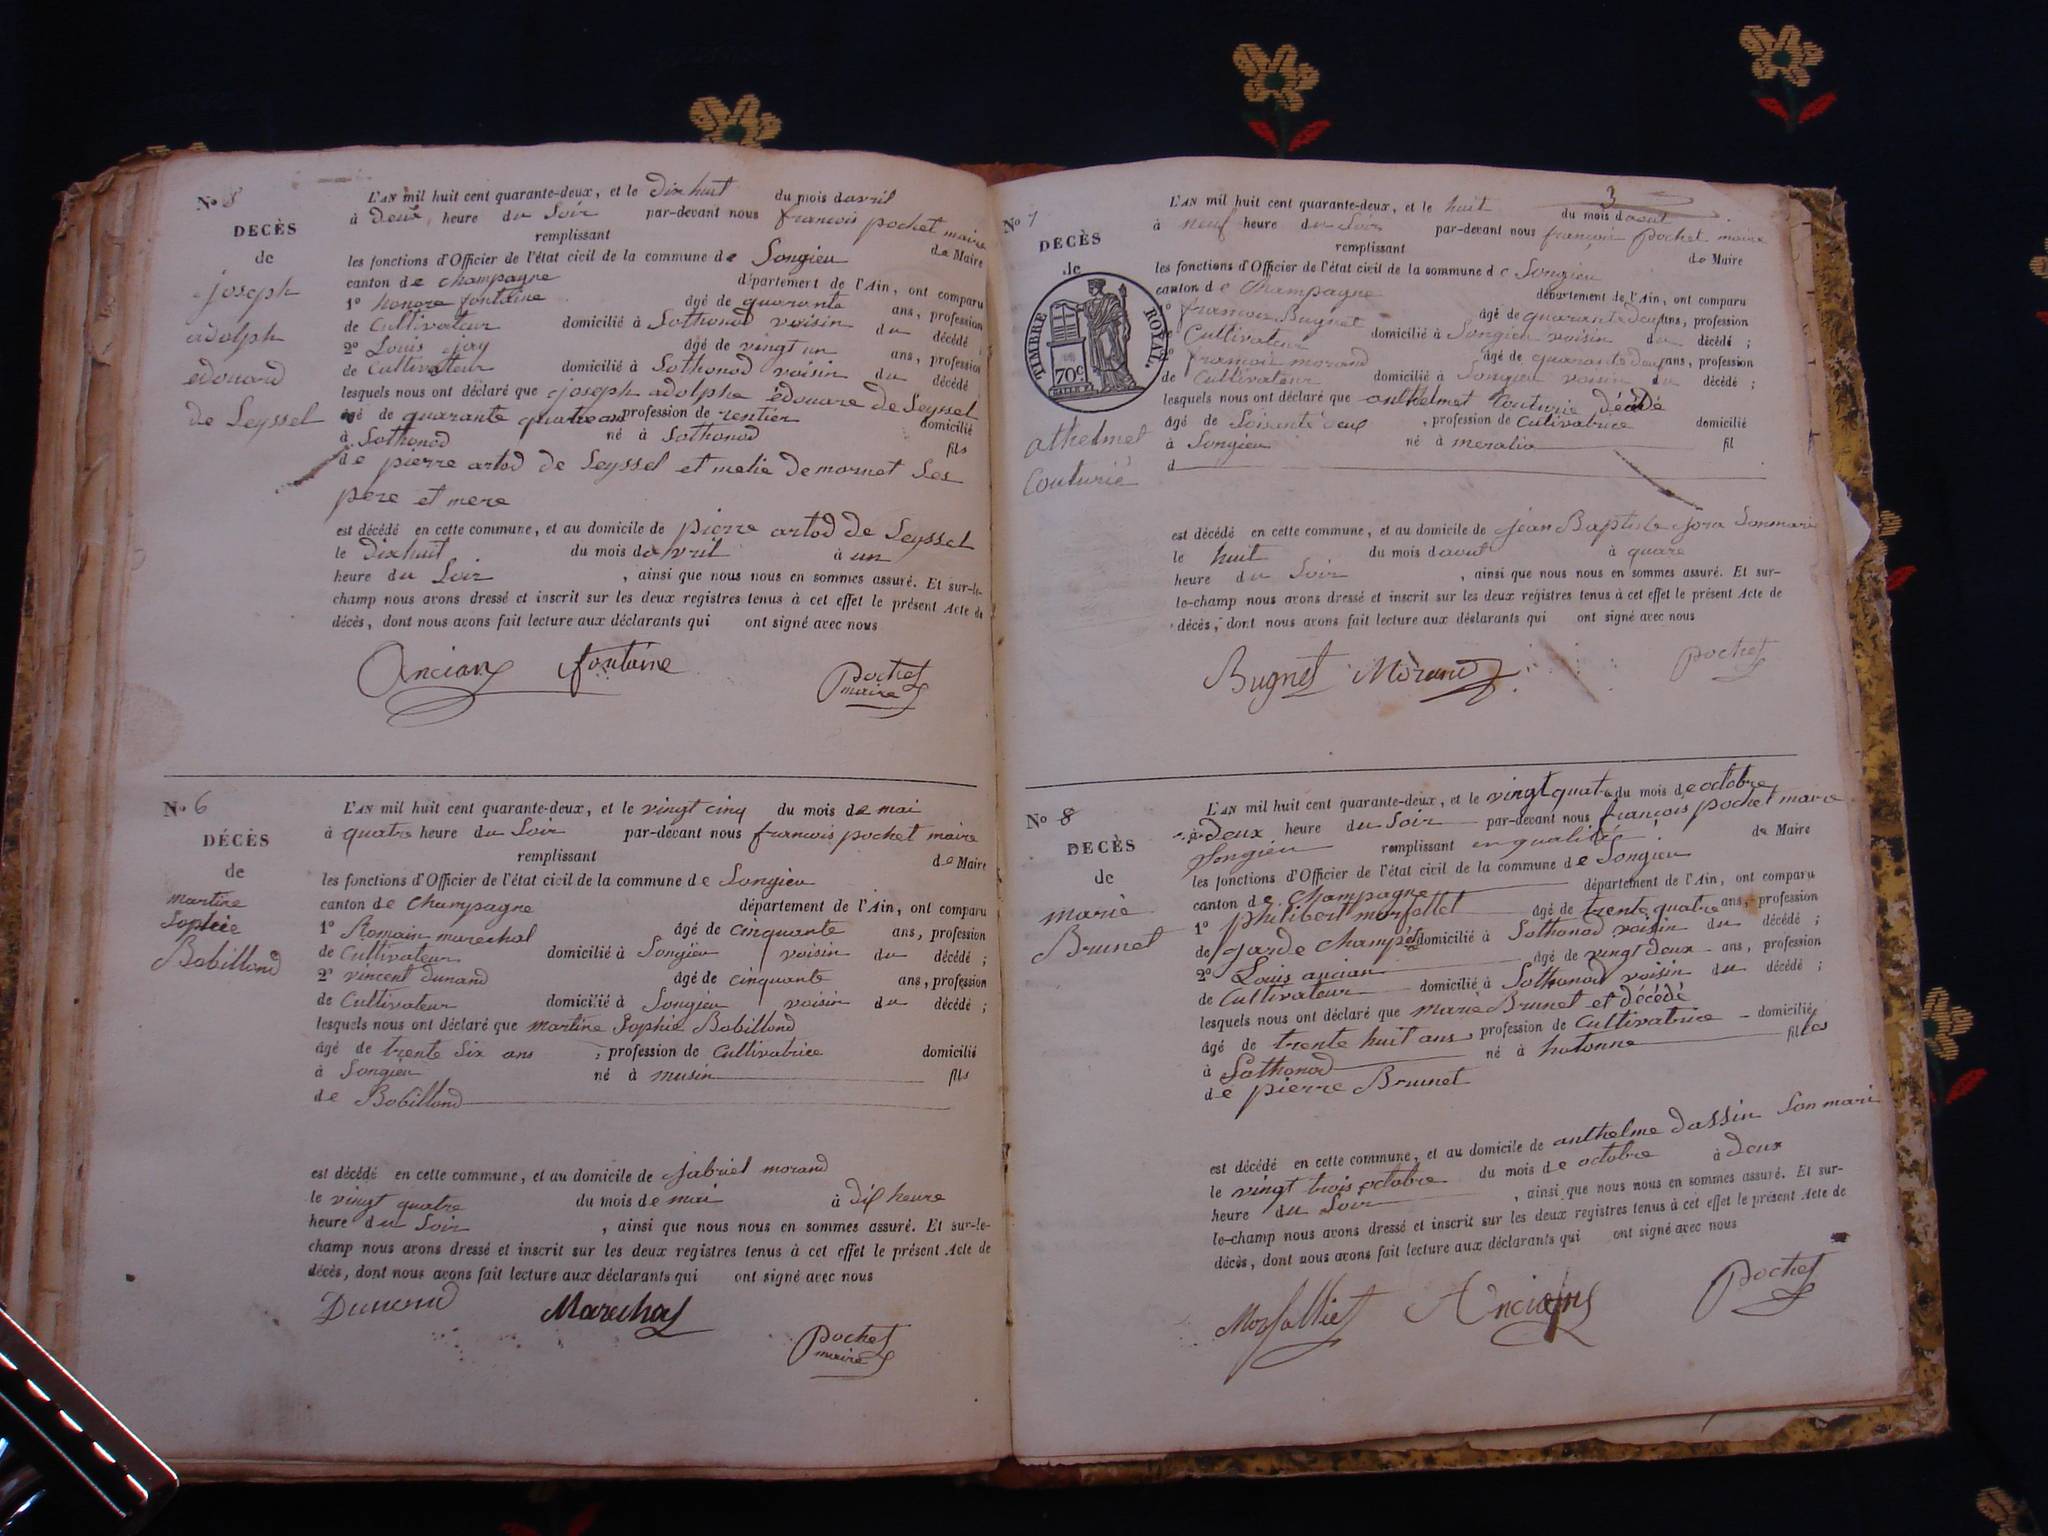 No 5
DÉCÈS
de
joseph
adolph
edouard
de Seyssel
L'AN mil huit cent quarante-deux, et le dix huit du mois d avril
à deux heure du Soir par-devant nous francois pochet maire
remplissant de Maire
les fonctions d'Officier de l'état civil de la commune de Songieu
canton de champagne département de l'Ain, ont comparu
1º honore fontaine âgé de quarante ans, profession
de Cultivateur domicilié à Sothonod voisin du décédé
2º Louis âgé de vingt un ans, profession
de Cultivateur domicilié à Sothonod voisin du décédé
lesquels nous ont déclaré que joseph adolphe édouare de Seyssel
âgé de quarante quatre an profession de rentier domicilié
à Sothonod né à Sothonod fils
de pierre artod de Seyssel et melie demornet Ses
pere et mere
est décédé en cette commune, et au domicile de pierre artod de Seyssel
le dixhuit du mois davril à un
heure du Soir , ainsi que nous nous en sommes assuré. Et sur-le-
champ nous avons dressé et inscrit sur les deux registres tenus à cet effet le présent Acte de
décès, dont nous avons fait lecture aux déclarants qui ont signé avec nous
Ancian fontaine Pochet
maire
No 6
DÉCÈS
de
martine
Sophie
Bobillond
L'AN mil huit cent quarante-deux, et le vingt cinq du mois de mai
à quatre heure du Soir par-devant nous francois pochet maire
remplissant de Maire
les fonctions d'Officier de l'état civil de la commune de Songieu
canton de champagne département de l'Ain, ont comparu
1º Romain marechal âgé de cinquante ans, profession
de Cultivateur domicilié à Songieu voisin du décédé ;
2º vincent dunand âgé de cinquante ans, profession
de Cultivateur domicilié à Songieu voisin du décédé ;
lesquels nous ont déclaré que martine Sophie Bobillond
âgé de trente Six ans , profession de Cultivatrice domicilié
à Songieu né à musin fils
de Bobillond
est décédé en cette commune, et au domicile de gabriel morand
le vingt quatre du mois de mai à dix heure
heure du Soir , ainsi que nous nous en sommes assuré. Et sur-le-
champ nous avons dressé et inscrit sur les deux registres tenus à cet effet le présent Acte de
décès, dont nous avons fait lecture aux déclarants qui ont signé avec nous
Dunand Marechal Pochet
maire
3
No 7
DÉCÈS
de
TIMBRE ROYAL.
70c
athelmet
Couturié
L'AN mil huit cent quarante-deux, et le huit du mois daout
à neuf heure du Soir par-devant nous françois pochet maire
remplissant de Maire
les fonctions d'Officier de l'état civil de la commune de Songieu
canton de Champagne département de l'Ain, ont comparu
1º francois Bugnet âgé de quarante deux ans, profession
Cultivateur domicilié à Songieu voisin du décédé ;
2º françois morand âgé de quarante deux ans, profession
de Cultivateur domicilié à Songieu voisin du décédé ;
lesquels nous ont déclaré que anthelmet Couturié décédé
âgé de Soisante deux , profession de Cultivatrice domicilié
à Songieu né à meralia fil
d
est décédé en cette commune, et au domicile de jean Baptiste jora Son mari
le huit du mois daout à quare
heure du Soir , ainsi que nous nous en sommes assuré. Et sur-
le-champ nous avons dressé et inscrit sur les deux registres tenus à cet effet le présent Acte de
décès, dont nous avons fait lecture aux déclarants qui ont signé avec nous
Bugnet Morand Pochet
No 8
DÉCÈS
de
marie
Brunet
L'AN mil huit cent quarante-deux, et le vingt quatre du mois de octobre
à Deux heure du Soir par-devant nous françois pochet maire
Songieu remplissant en qualitée de Maire
les fonctions d'Officier de l'état civil de la commune de Songieu
canton de champagne département de l'Ain, ont comparu
1º philibert morfollet âgé de trente quatre ans, profession
de garde champêtre domicilié à Sothonod voisin du décédé ;
2º Louis ancian âgé de vingt deux ans, profession
de Cultivateur domicilié à Sothonod voisin du décédé ;
lesquels nous ont déclaré que marie Brunet et décédé
âgé de trente huit ans, profession de Cultivatrice domicilié
à Sothonod né à hotonne filles
de pierre Brunet
est décédé en cette commune, et au domicile de anthelme dassin Son mari
le vingt trois octobre du mois de octobre à deux
heure du Soir , ainsi que nous nous en sommes assuré. Et sur-
le-champ nous avons dressé et inscrit sur les deux registres tenus à cet effet le présent Acte de
décès, dont nous avons fait lecture aux déclarants qui ont signé avec nous
Morfolliet Anciain Pochet